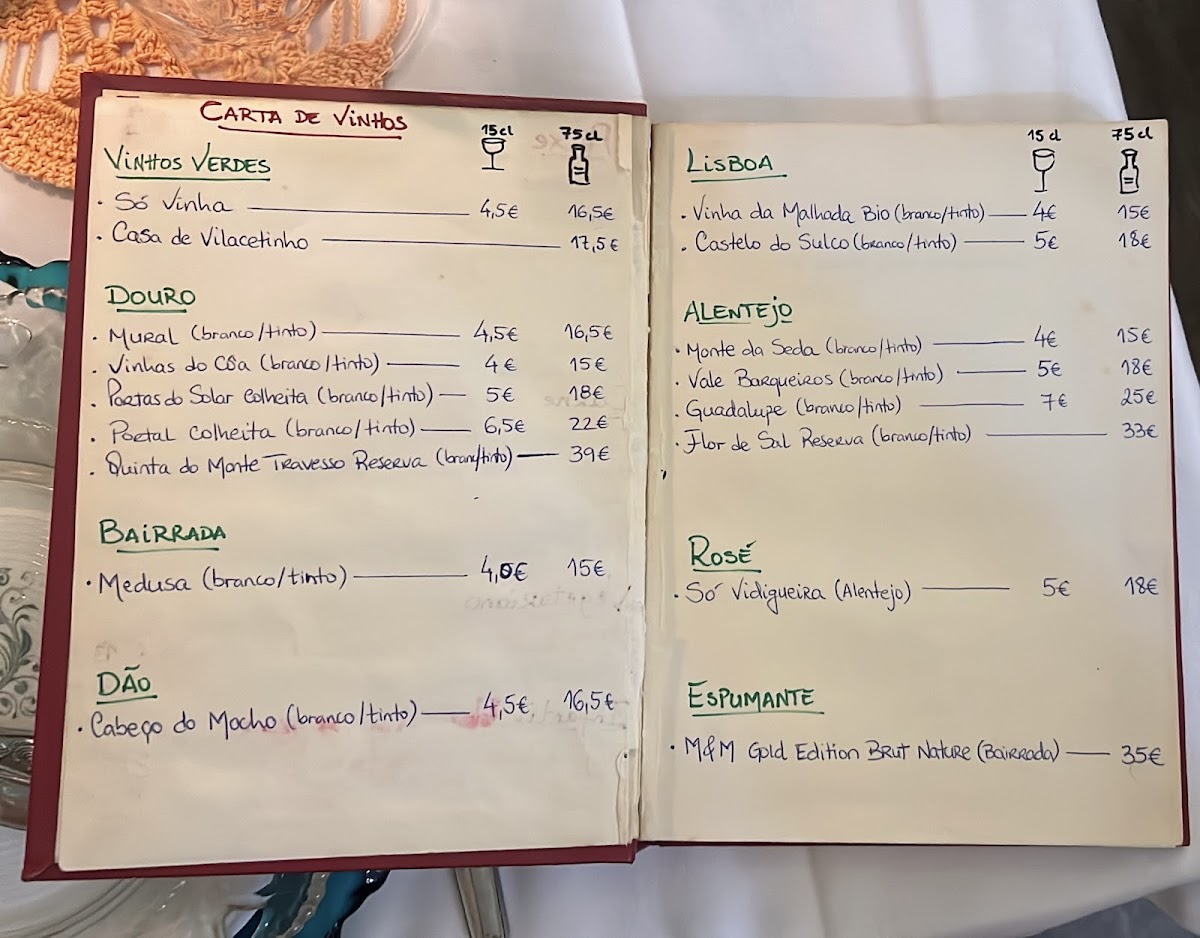 CARTA DE VINHOS
15cl 75cl
VINHOS VERDES
· Só Vinha 4,5€ 16,5€
· Casa de Vilacetinho 17,5€
DOURO
· MURAL (branco/tinto) 4,5€ 16,5€
· Vinhas do Côa (branco/tinto) 4€ 15€
· Portas do Solar Colheita (branco/tinto) 5€ 18€
· Portal Colheita (branco/tinto) 6,5€ 22€
· Quinta do Monte Travesso Reserva (branc/tinto) 39€
BAIRRADA
· Medusa (branco/tinto) 4,0€ 15€
DÃO
· Cabeço do Mocho (branco/tinto) 4,5€ 16,5€
15cl 75cl
LISBOA
· Vinha da Malhada Bio (branco/tinto) 4€ 15€
· Castelo do Sulco (branco/tinto) 5€ 18€
ALENTEJO
· Monte da Seda (branco/tinto) 4€ 15€
· Vale Barqueiros (branco/tinto) 5€ 18€
· Guadalupe (branco/tinto) 7€ 25€
· Flor de Sal Reserva (branco/tinto) 33€
ROSÉ
· Só Vidigueira (Alentejo) 5€ 18€
ESPUMANTE
· M&M Gold Edition Brut Nature (Bairrada) 35€